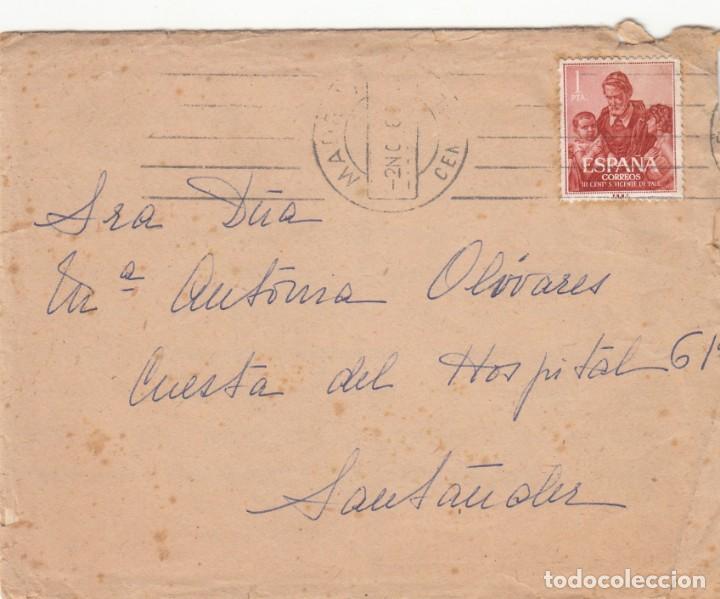 MAD
-2NO 6
CEN
1
PTA.
ESPAÑA
CORREOS
III CENT° S. VICENTE DE PAUL
Sra Dña
Mª Antonia Olóvares
Cuesta del Hospital 61
Santander
todocoleccion.net